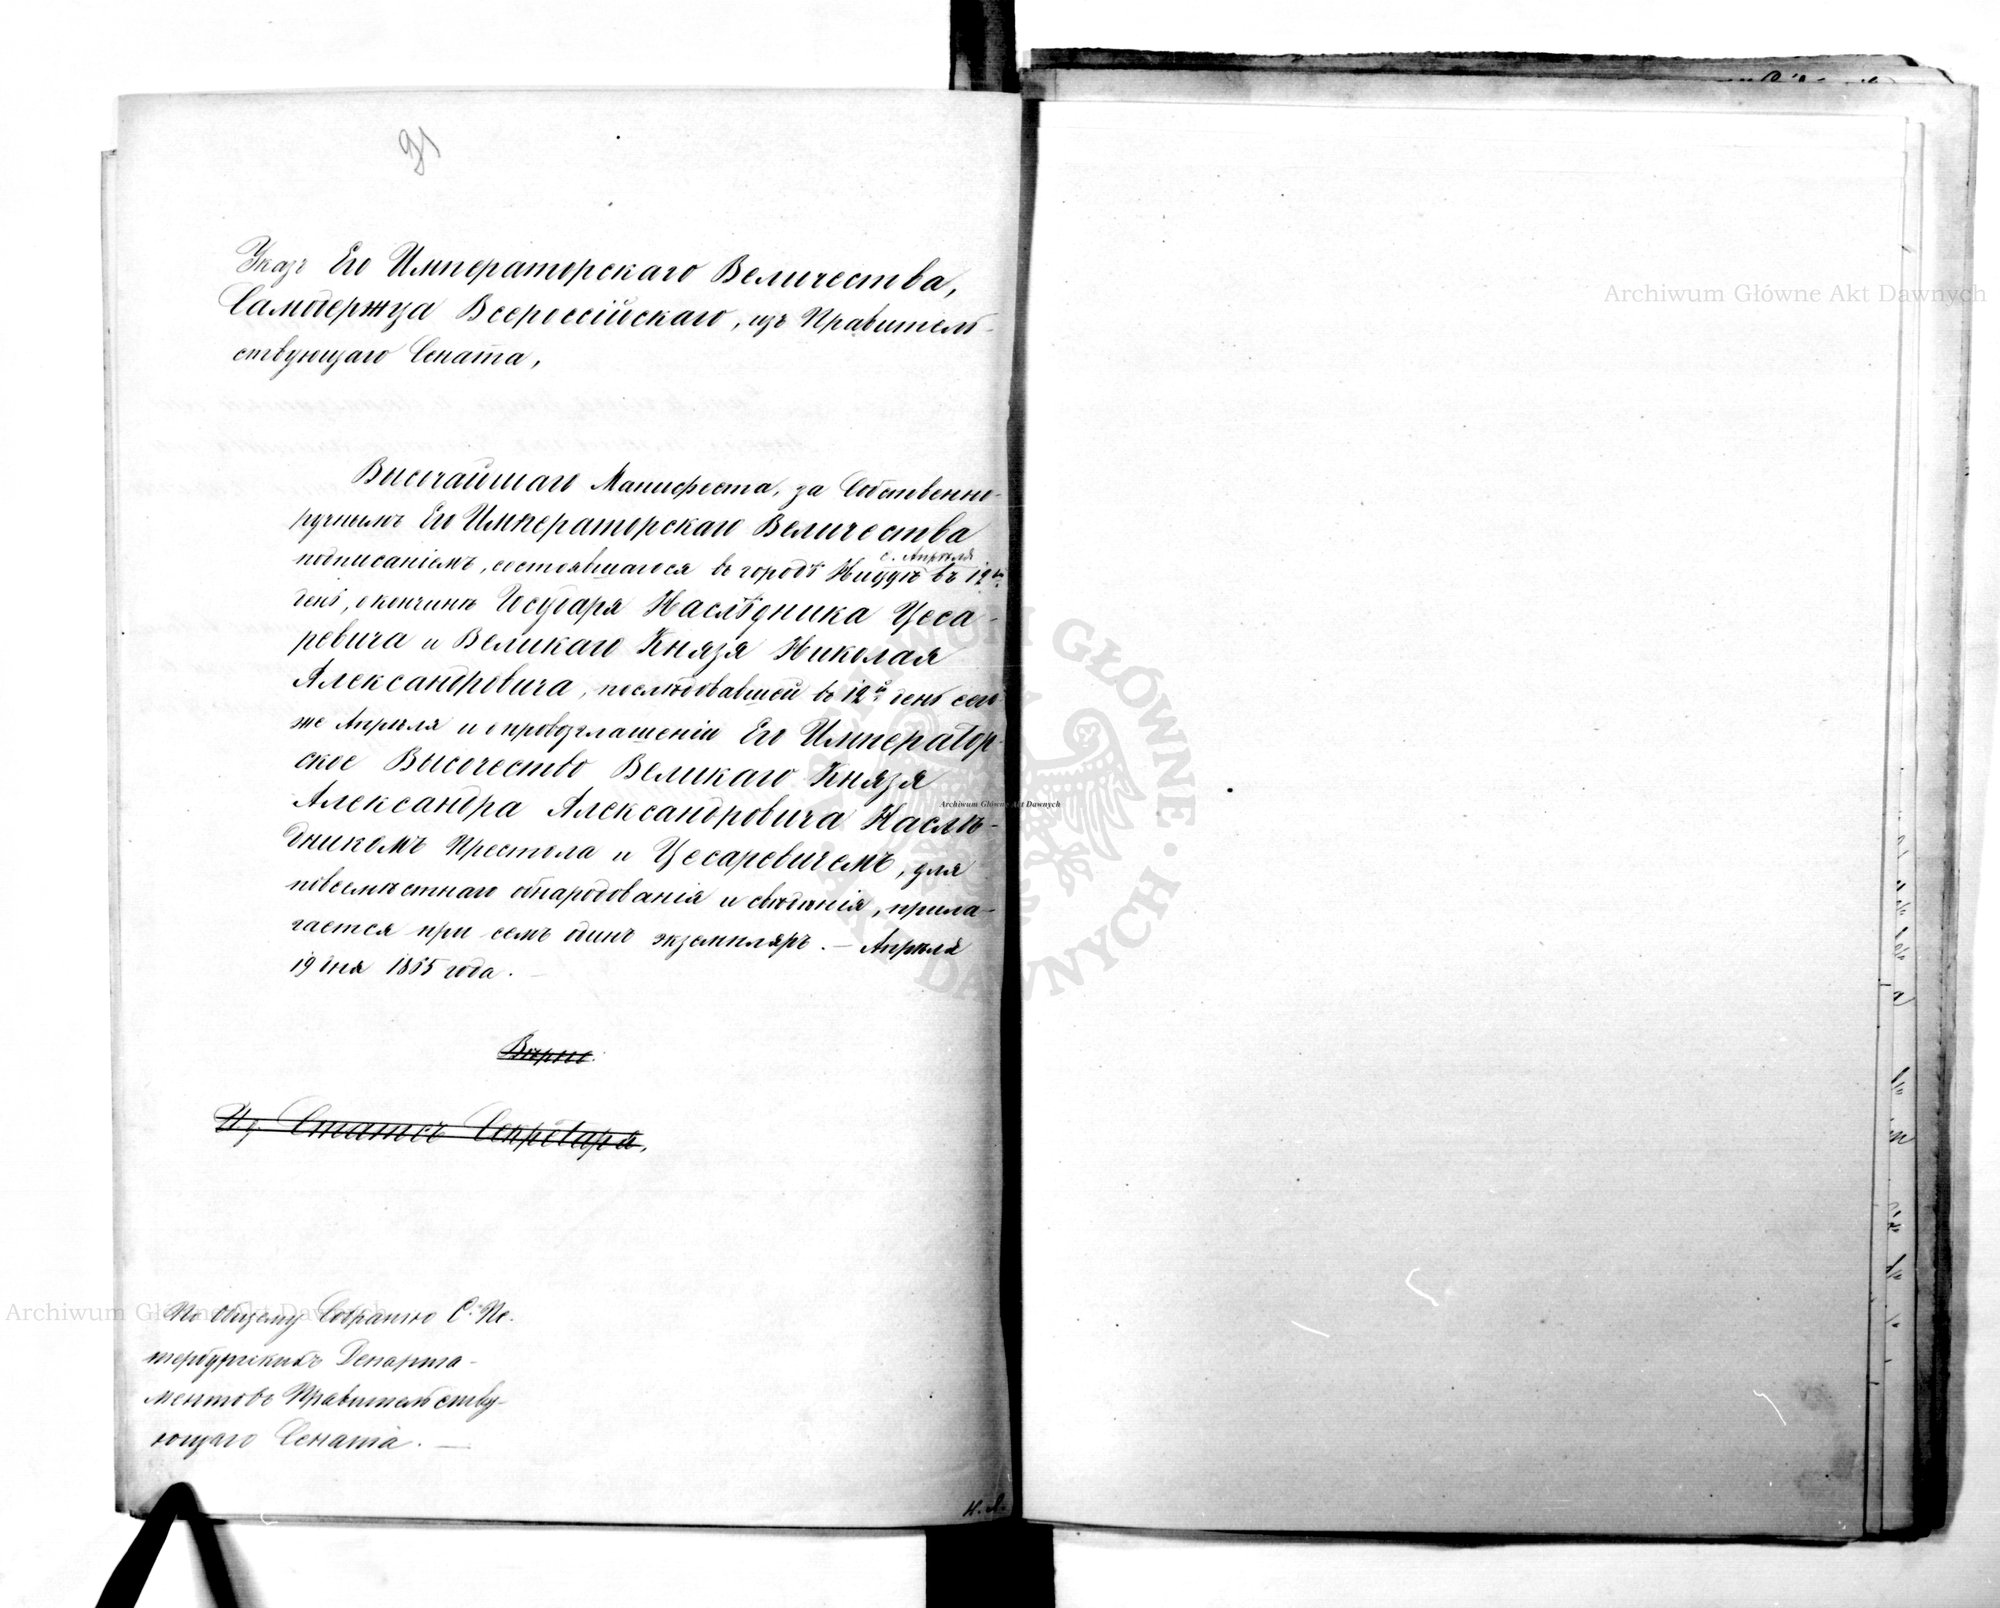 91
Указъ Его Императорскаго Величества,
Самодержца Всероссійскаго, изъ Правитель-
ствующаго Сената,
Высочайшаго Манифеста, за Собственно-
ручнымъ Его Императорскаго Величества
подписаніемъ, состоявшагося въ городѣ Ниццѣ въ 12й
с. Апрѣля
день, о кончинѣ Государя Наслѣдника Цеса-
ревича и Великаго Князя Николая
Александровича, послѣдовавшей въ 12й день сего
же Апрѣля и о провозглашеніи Его Император-
ское Высочество Великаго Князя
Александра Александровича Наслѣ-
дникомъ Престола и Цесаревичемъ, для
повсемѣстнаго обнародованія и свѣдѣнія, прила-
гается при семъ одинъ экземпляръ. — Апрѣля
19 дня 1865 года. —
Вѣрно:
Статсъ Секретаря,
По Общему Собранію С. Пе.
тербургскихъ Департа-
ментовъ Правительству-
ющаго Сената. —
Н. Л.
Archiwum Główne Akt Dawnych
Archiwum Główne Akt Dawnych
Archiwum Główne Akt Dawnych
ARCHIWUM GŁÓWNE · AKT DAWNYCH ·